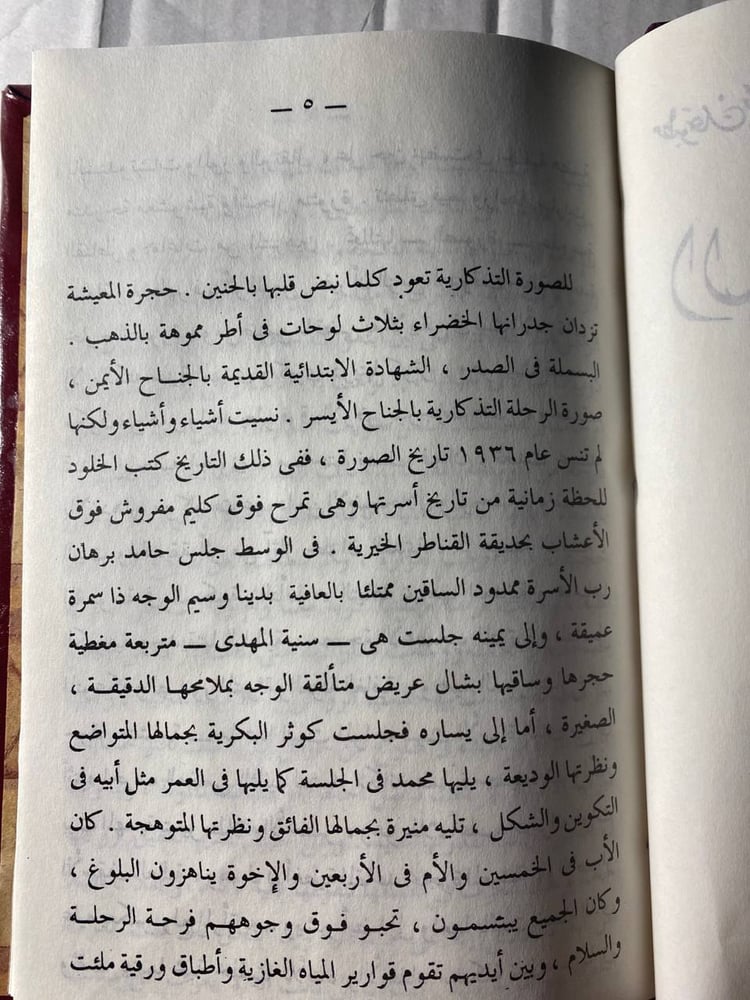 — ٥ —
للصورة التذكارية تعود كلما نبض قلبها بالحنين . حجرة المعيشة
تزدان جدرانها الخضراء بثلاث لوحات فى أطر مموهة بالذهب .
البسملة فى الصدر ، الشهادة الابتدائية القديمة بالجنـاح الأيمن ،
صورة الرحلة التذكارية بالجناح الأيسر . نسيت أشياء وأشياء ولكنها
لم تنس عام ١٩٣٦ تاريخ الصورة ، ففى ذلك التاريخ كتب الخلود
للحظة زمانية من تاريخ أسرتها وهى تمرح فوق كليم مفروش فوق
الأعشاب بحديقة القناطر الخيرية . فى الوسط جلس حامد برهان
رب الأسرة ممدود الساقين ممتلئا بالعافية بدينا وسيم الوجه ذا سمرة
عميقة ، وإلى يمينه جلست هى — سنية المهدى — متربعة مغطية
حجرها وساقيها بشال عريض متألقة الوجه بملامحها الدقيقـة ،
الصغيرة ، أما إلى يساره فجلست كوثر البكرية بجمالها المتواضع
ونظرتها الوديعة ، يليها محمد فى الجلسة كما يليها فى العمر مثل أبيه فى
التكوين والشكل ، تليه منيرة بجمالها الفائق ونظرتها المتوهجة . كان
الأب فى الخمسين والأم فى الأربعين والإخوة يناهزون البلوغ ،
وكان الجميع يبتسمـون ، تحبو فـوق وجوههـم فرحـة الرحلـة
والسلام ، وبين أيديهم تقوم قوارير المياه الغازية وأطباق ورقية ملئت